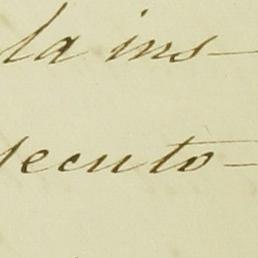 la ins-
secuto-